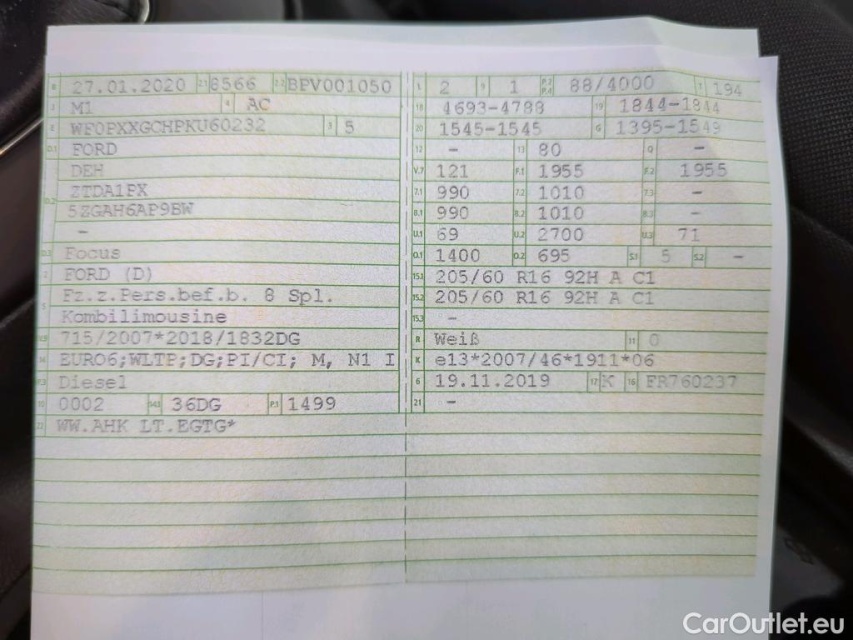 27.01.2020 8566 BPV001050
M1 AC
WF0PXXGCHPKU60232 5
FORD
DEH
ZTDA1PX
5ZGAH6AP9BW
-
Focus
FORD (D)
Fz.z.Pers.bef.b. 8 Spl.
Kombilimousine
715/2007*2018/1832DG
EURO6;WLTP;DG;PI/CI; M, N1 I
Diesel
0002 36DG P.1 1499
WW.AHK LT.EGTG*
2 9 1 P.2 P.4 88/4000 T 194
18 4693-4788 19 1844-1844
20 1545-1545 G 1395-1549
12 - 13 80 Q -
V.7 121 F.1 1955 F.2 1955
7.1 990 7.2 1010 7.3 -
8.1 990 8.2 1010 8.3 -
U.1 69 U.2 2700 U.3 71
O.1 1400 O.2 695 S.1 5 S.2 -
15.1 205/60 R16 92H A C1
15.2 205/60 R16 92H A C1
15.3 -
R Weiß 11 0
K e13*2007/46*1911*06
6 19.11.2019 17 K 16 FR760237
21 -
CarOutlet.eu